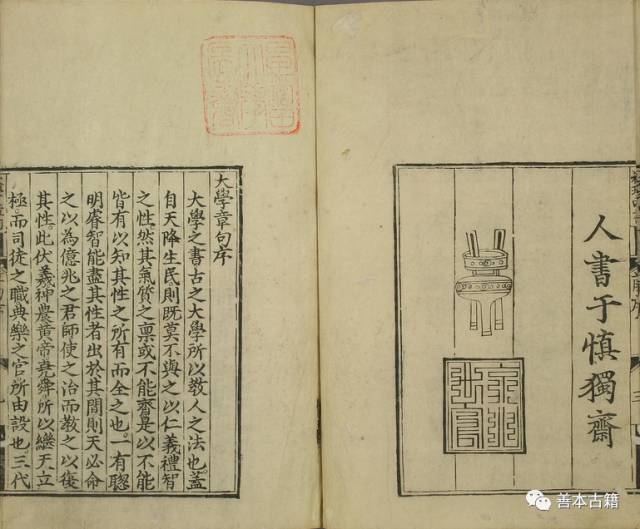 人書于慎獨齋
大學章句序
大學之書古之大學所以教人之法也蓋
自天降生民則既莫不與之以仁義禮智
之性矣然其氣質之稟或不能齊是以不能
皆有以知其性之所有而全之也一有聰
明睿智能盡其性者出於其間則天必命
之以為億兆之君師使之治而教之以復
其性此伏羲神農黃帝堯舜所以繼天立
極而司徒之職典樂之官所由設也三代
善本古籍